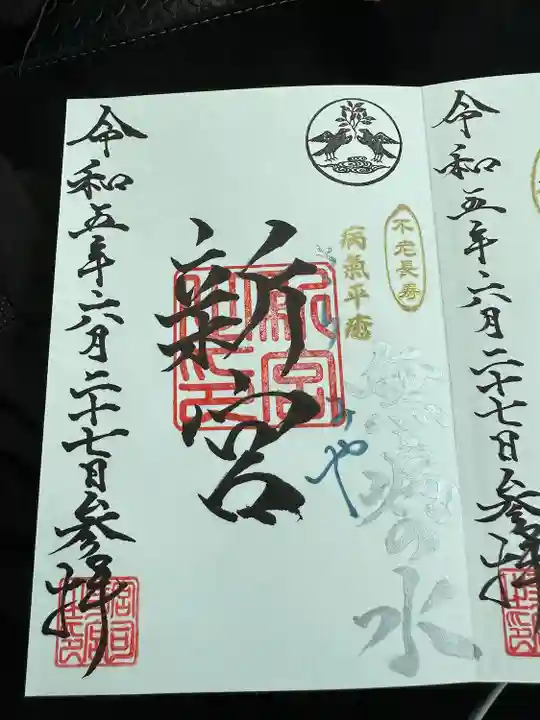 令和五年六月二十七日参拝
不老長寿
病氣平癒
の水
みや
新宮
令和五年六月二十七日参拝